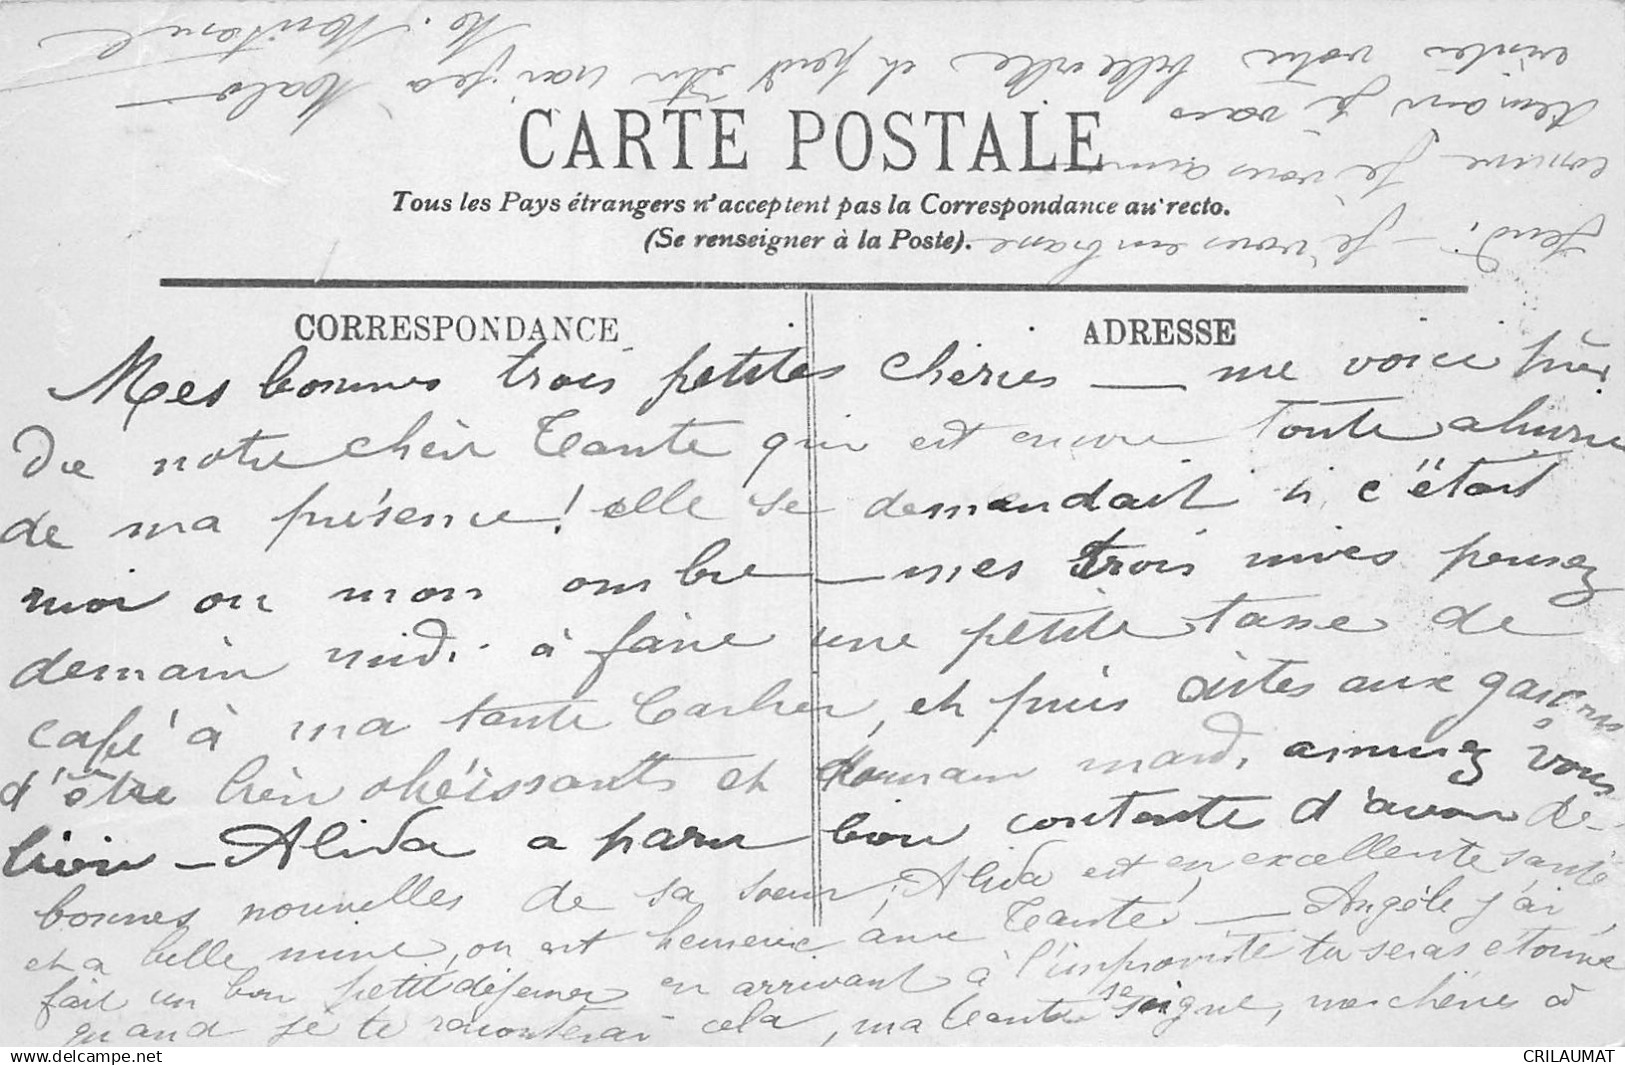 CARTE POSTALE
Tous les Pays étrangers n'acceptent pas la Correspondance au recto.
(Se renseigner à la Poste).
CORRESPONDANCE
ADRESSE
Mes bonnes trois petites chéries — me voici près
de notre chère Tante qui est encore toute ahurie
de ma présence! elle se demandait si c'était
moi ou mon ombre — mes trois mies pensez
demain midi à faire une petite tasse de
café à ma tante et puis dites aux garçons
d'être bien obéissants et demain mardi amusez vous
bien — Alida a paru bien contente d'avoir de
bonnes nouvelles de sa soeur, Alida est en excellente santé
et a belle mine, on est heureux avec Tante. — Angèle j'ai
fait un bon petit déjeuner en arrivant à l'improviste tu seras étonnée
quand je te raconterai cela, ma Tante se soigne, mes chéries à
jeudi — je vous embrasse
comme je vous aime
demain je vais
visiter votre belle ville et peut être irai-je à Malo —
M.
CRILAUMAT